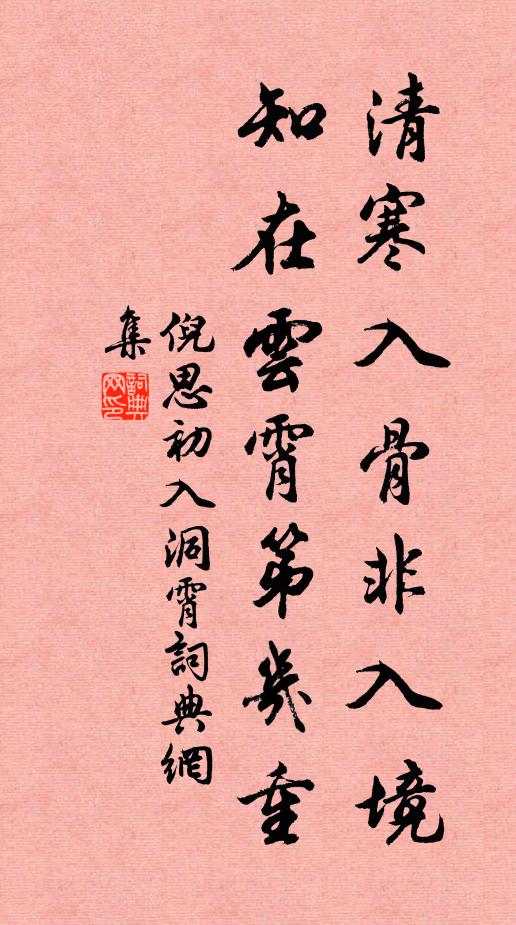 清寒入骨非入境
知在雲霄第幾重
倪思初入洞霄詞典網
集
詞典網印